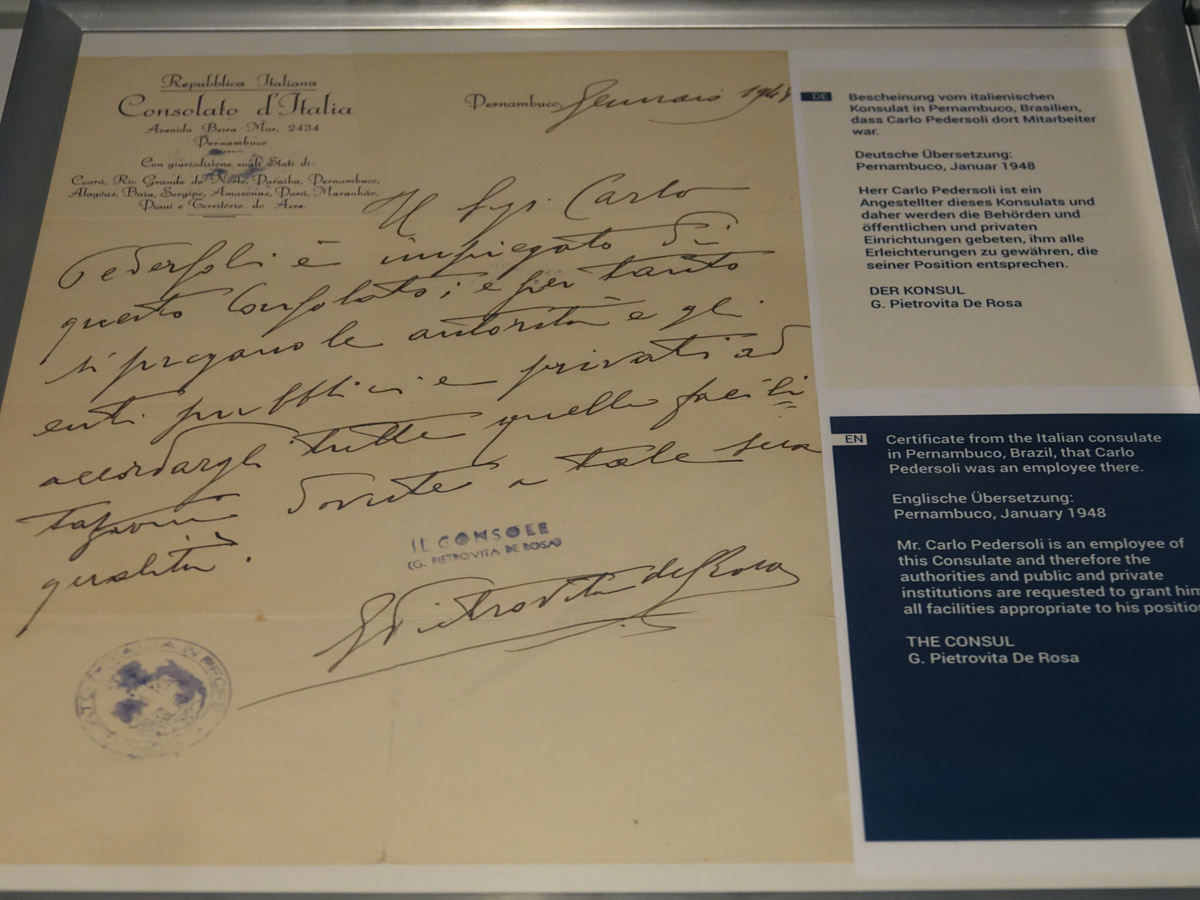 Repubblica Italiana
Consolato d'Italia
Avenida Beira-Mar, 2434
Pernambuco
Con giurisdizione sugli Stati di:
Ceará, Rio Grande do Norte, Paraiba, Pernambuco,
Alagôas, Baia, Sergipe, Amazonas, Pará, Maranhão,
Piaui e Território do Acre.
Pernambuco, Gennaio 1948
Il Sigr. Carlo
Pedersoli è impiegato di
questo Consolato; e per tanto
si pregano le autorità e gli
enti pubblici e privati ad
accordargli tutte quelle facili
tazioni dovute a tale sua
qualità.
IL CONSOLE
(G. PIETROVITA DE ROSA)
G Pietrovita de Rosa
DE
Bescheinung vom italienischen
Konsulat in Pernambuco, Brasilien,
dass Carlo Pedersoli dort Mitarbeiter
war.
Deutsche Übersetzung:
Pernambuco, Januar 1948
Herr Carlo Pedersoli ist ein
Angestellter dieses Konsulats und
daher werden die Behörden und
öffentlichen und privaten
Einrichtungen gebeten, ihm alle
Erleichterungen zu gewähren, die
seiner Position entsprechen.
DER KONSUL
G. Pietrovita De Rosa
EN
Certificate from the Italian consulate
in Pernambuco, Brazil, that Carlo
Pedersoli was an employee there.
Englische Übersetzung:
Pernambuco, January 1948
Mr. Carlo Pedersoli is an employee of
this Consulate and therefore the
authorities and public and private
institutions are requested to grant him
all facilities appropriate to his positio
THE CONSUL
G. Pietrovita De Rosa